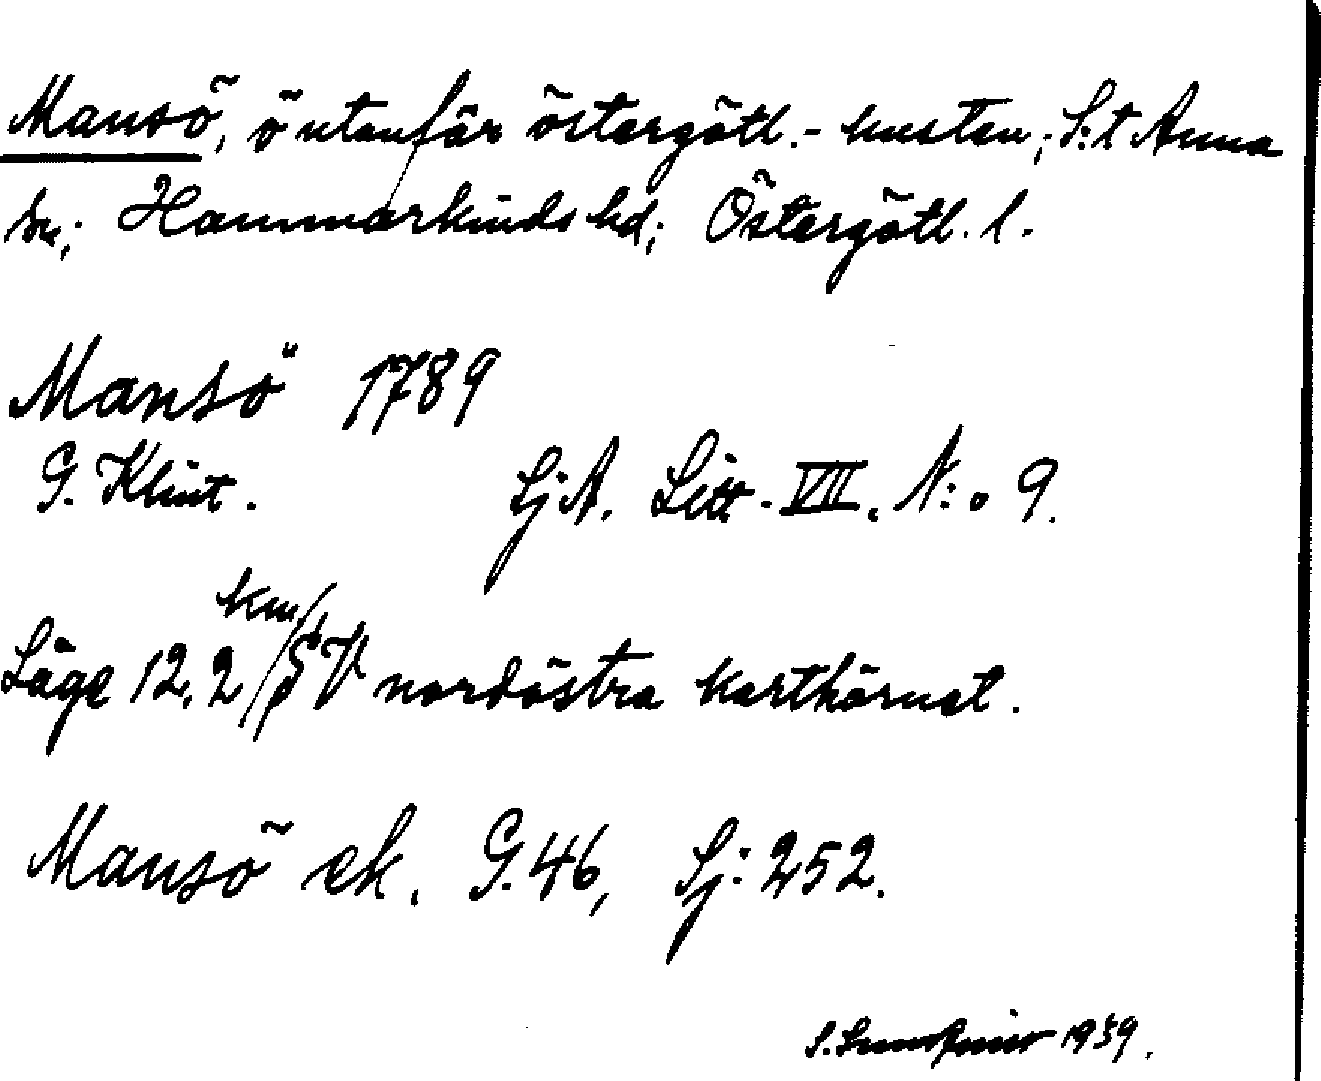 Mansö, ö utanför östergötl.- kusten; S:t Anna
sn; Hammarkinds hd; Östergötl. l.
Mansö 1789
G. Klint. Sj A. Litt. VII. N:o 9.
Läge 12,2 km SV nordöstra karthörnet.
Mansö ek. G. 46, Sj: 252.
S. 1939.